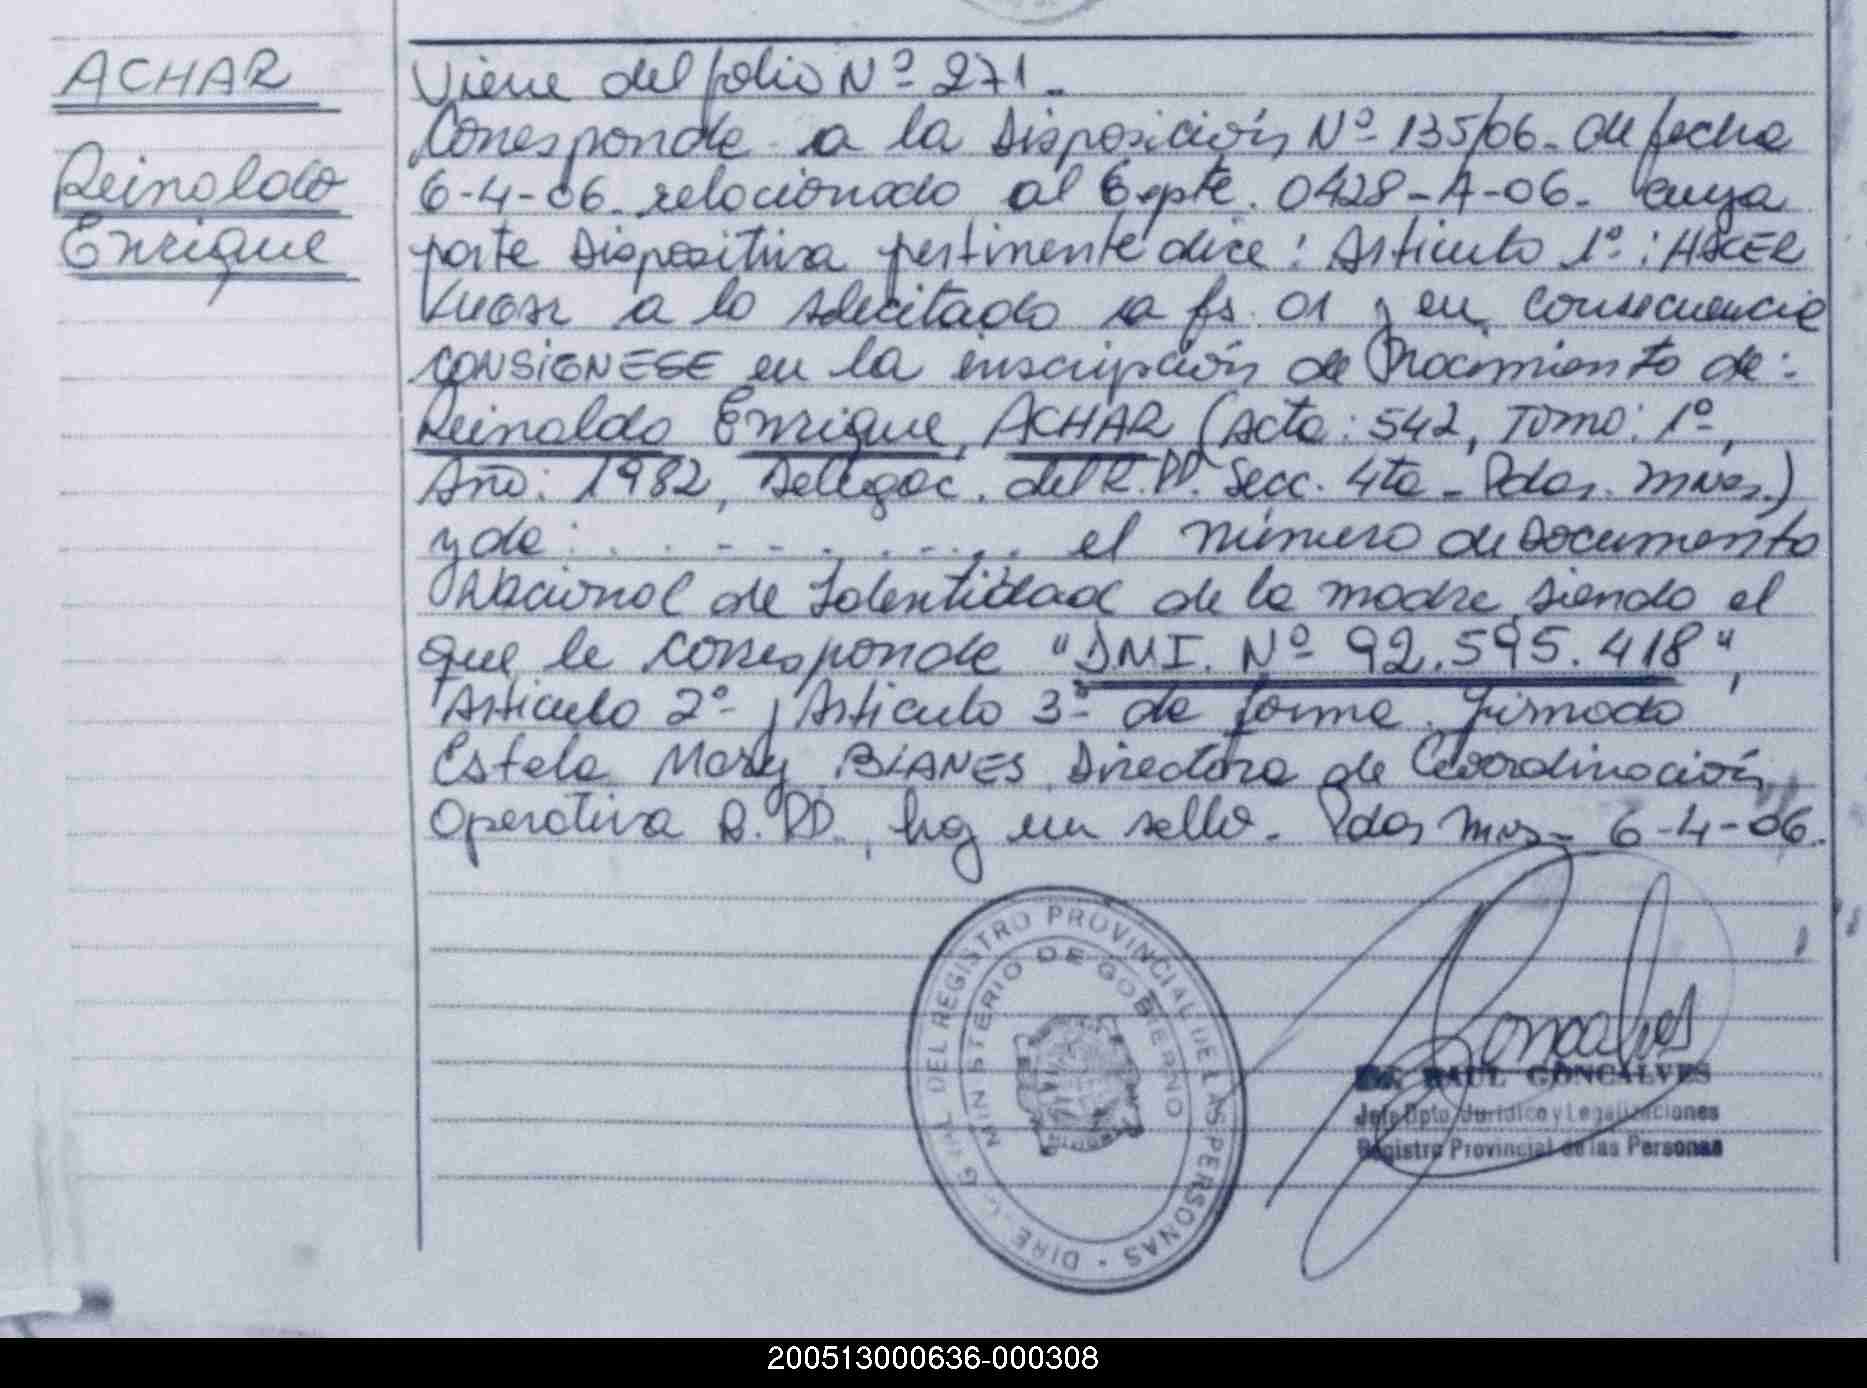 ACHAR
Reinaldo
Enrique
Viene del folio Nº 271.
Corresponde a la Disposición Nº 135/06. de fecha
6-4-06. relacionado al Expte. 0428-A-06. cuya
parte Dispositiva pertinente dice: Artículo 1º: HACER
LUGAR a lo solicitado a fs. 01 y en consecuencia
CONSIGNESE en la inscripción de Nacimiento de:
Reinaldo Enrique, ACHAR (Acta: 542, Tomo: 1º,
Año: 1982, Delegac. del R.PP. Secc. 4ta - Pdas. Mnes.)
y de: . . - - . . - . . . el número de Documento
Nacional de Identidad de la madre, siendo el
que le corresponde "DNI. Nº 92.595.418",
Artículo 2º y Artículo 3º de forma. Firmado
Estela Mary BLANES Directora de Coordinación
Operativa R.PP., hay un sello. Pdas Mnes - 6-4-06.
DIREC. GRAL. DEL REGISTRO PROVINCIAL DE LAS PERSONAS
MINISTERIO DE GOBIERNO
Goncalves
RAUL GONCALVES
Jefe Dpto. Jurídico y Legalizaciones
Registro Provincial de las Personas
200513000636-000308